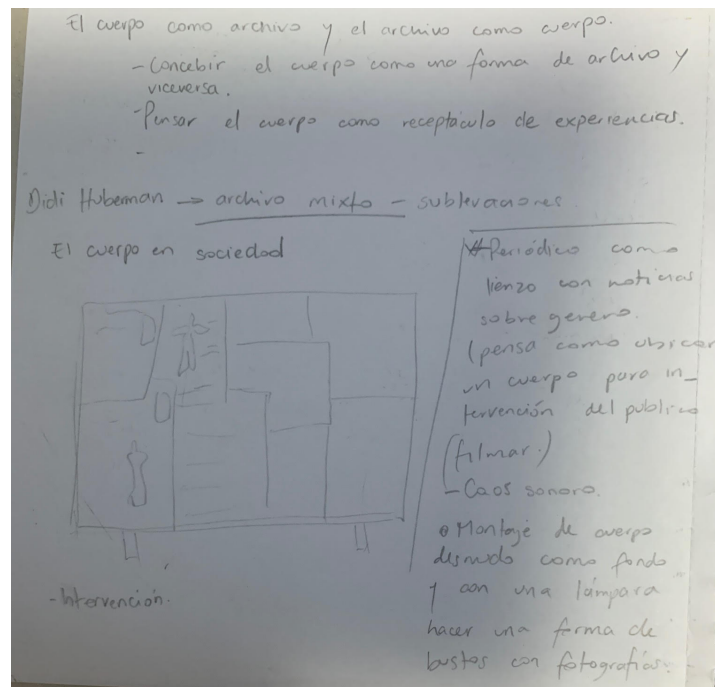 El cuerpo como archivo y el archivo como cuerpo.
- Concebir el cuerpo como una forma de archivo y
viceversa.
- Pensar el cuerpo como receptáculo de experiencias.
-
Didi Huberman → archivo mixto - sublevaciones
El cuerpo en sociedad
* Periódico como
lienzo con noticias
sobre genero.
(pensa como ubicar
un cuerpo para in-
tervención del publico
(filmar.)
- Caos sonoro.
• Montaje de cuerpo
desnudo como fondo
y con una lámpara
hacer una forma de
bustos con fotografías.
- Intervención.